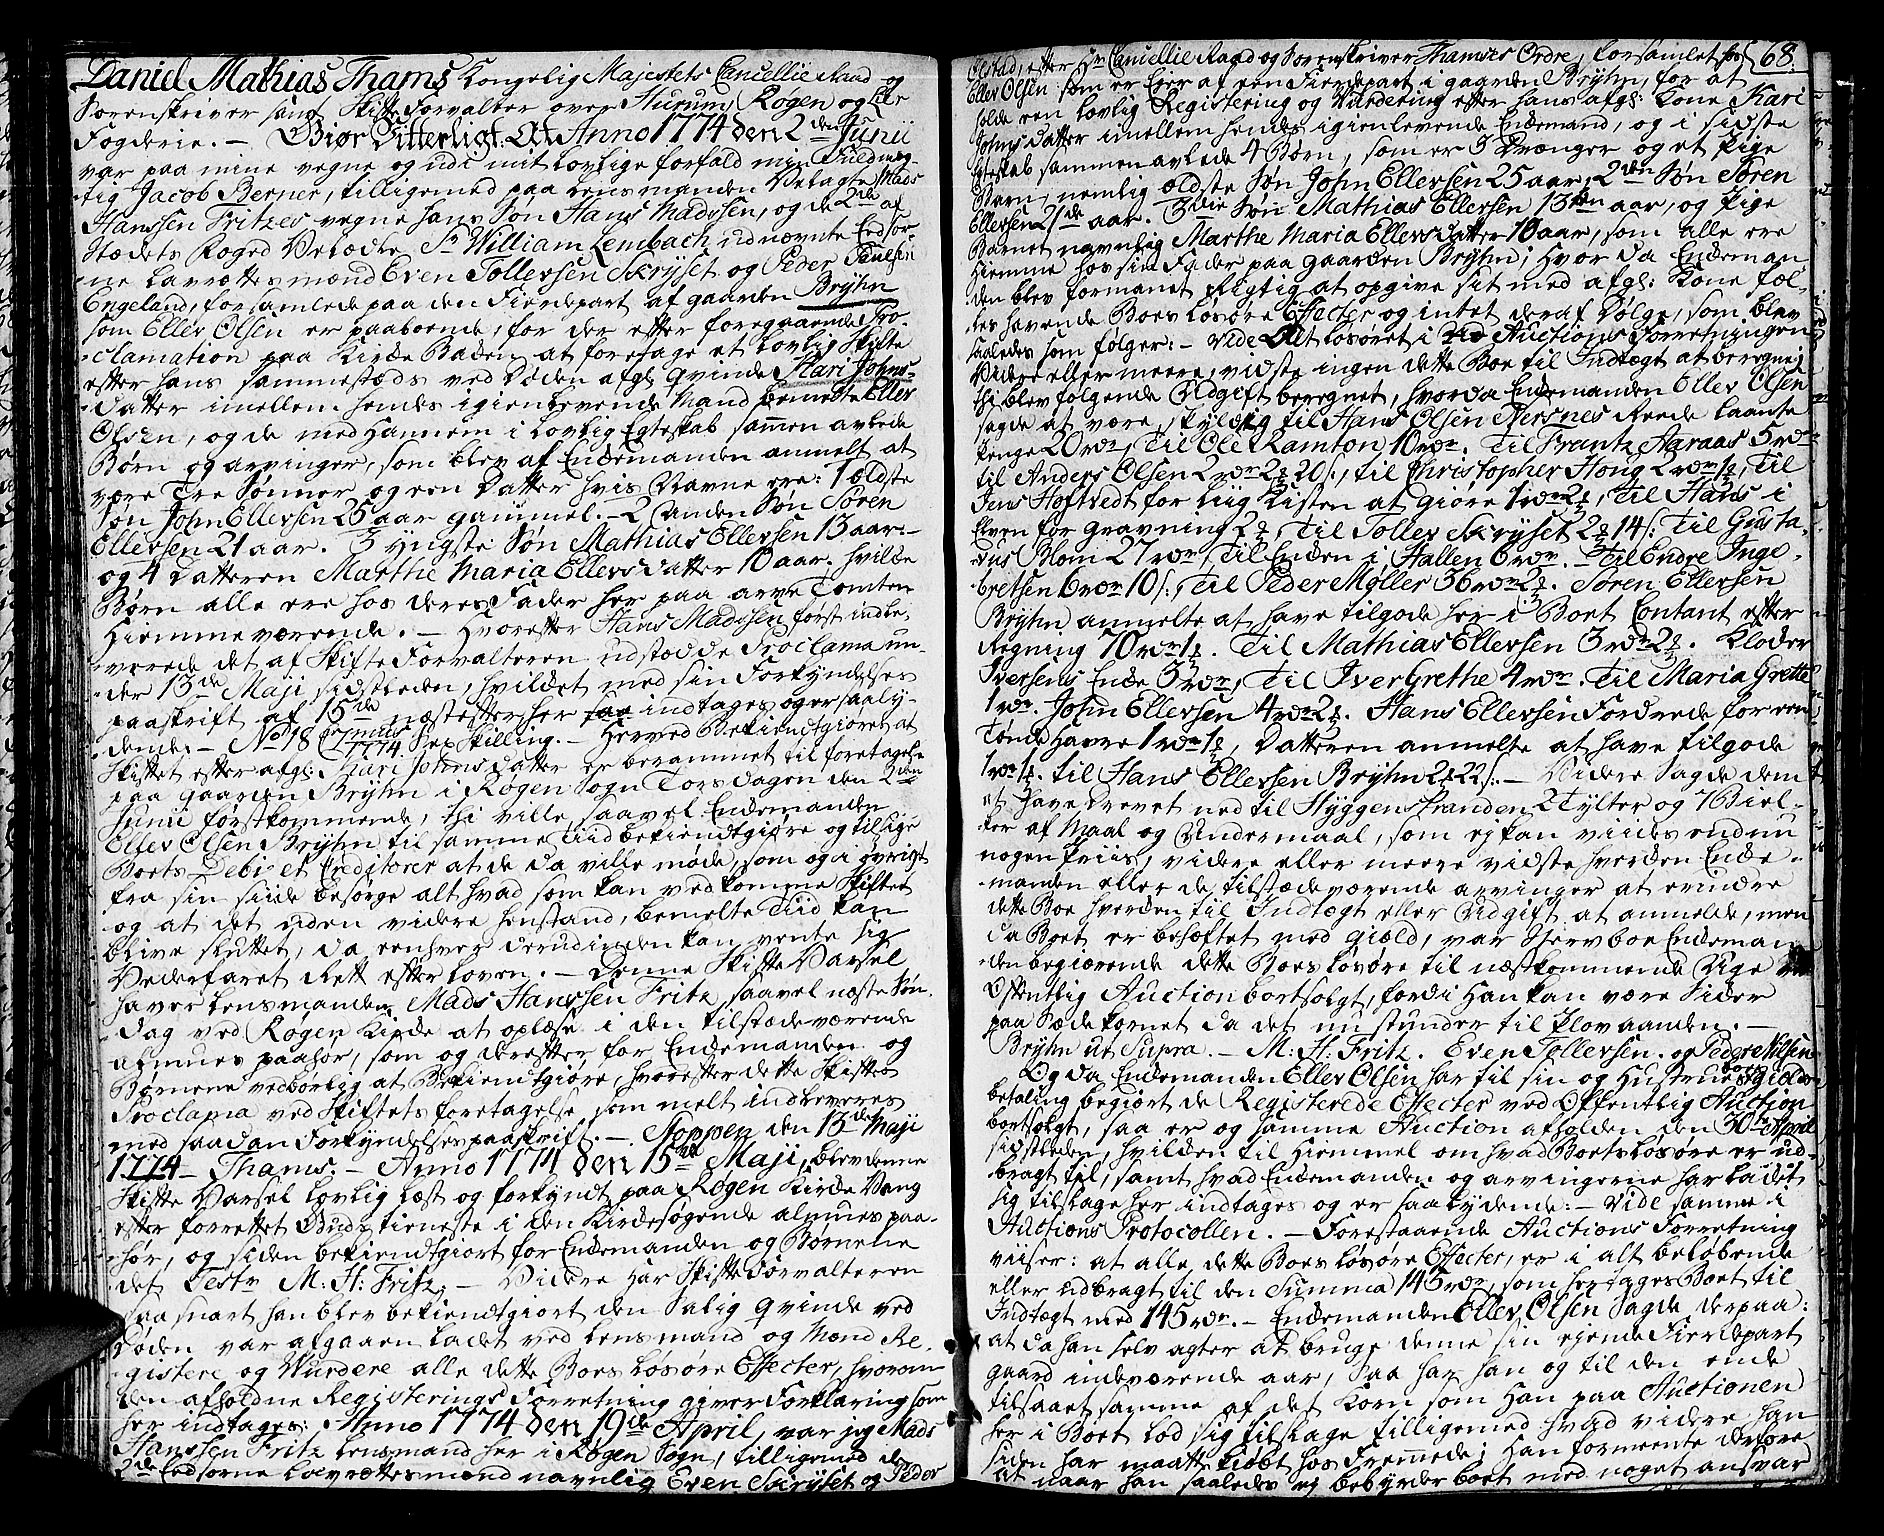 Daniel Mathias Thams Kongelig Majestets Cancellie Raad og
Sorenskriver samt Skifte Forvalter over Hurum, Røgen og Lier
Fogderie. – Giør Vitterligt: At Anno 1774 den 2den Junii
var paa mine vegne og udi mit lovlige forfald min Fuldmæg-
tig Jacob Berner, tilligemed paa Lensmanden Velagte Mads
Hanssen Fritzes vegne hans Søn Hans Madssen, og de 2de af
Stædets Foged Velædle Sr William Lembach udnævnte Eedsor-
ne Lavrettesmænd Even Tollevsen Skryset og Peder Paulsen
Engeland, forsamlede paa den Fierdepart af gaarden Bryhn
som Ellev Olsen er paaboende, for der efter foregaaende Pro-
clamation paa Kirke Backen at foretage et lovlig Skifte
efter hans sammestæds ved Døden afgl. Qvinde Kari Johns-
datter imellem hendes igienlevende Mand bemelte Ellev
Olsen, og de med Hannem i lovlig Egteskab sammen avlede
Børn og arvinger, som blev af Enckemanden anmelt at
være Tre Sønner og een Datter hvis Navne ere: 1 ældste
Søn John Ellevsen 25 aar gammel. – 2 Anden Søn Søren
Ellevsen 21 aar. 3 yngste Søn Mathias Ellevsen 13 aar. –
og 4 Datteren Marthe Maria Ellevsdatter 10 aar. hvilke
Børn alle ere hos deres Fader her paa arve Tomten
Hiemmeværende. – Hvorefter Hans Madssen først indle-
verede det af Skifte Forvalteren udstædde Proclama un-
der 13de Maji sidstleden, hvilcket med sin Forkyndelses
paaskrift af 15de næstefter her indtages og er saaly-
dende. – No 18 1774 Sex Skilling. – Herved Bekiendtgiøres at
Skiftet efter afgl: Kari Johnsdatter er berammet til foretagelse
paa gaarden Bryhn i Røgen Sogn Torsdagen den 2den
Junii førstkommende, thi ville saavel Enckemanden
Ellev Olsen Bryhn til samme Tiid bekiendtgiøre og tilsige
Boets Debi et Creditorer at de da ville møde, som og i øvrigt
fra sin siide besørge alt hvad som kan vedkomme Skiftet
og at det uden videre henstand, bemelte Tiid kan
blive sluttet, da eenhver derudinden kan vente sig
Vederfaret Rett efter loven. – Denne Skifte Varsel
haver Lensmanden Mads Hanssen Fritz, saavel næste Søn-
dag ved Røgen Kirke at oplæse i den tilstædeværende
almues paahør, som og derefter for Enckemanden og
Børnene vedbørlig at Bekiendtgiøre, hvorefter dette Skiftes
Proclama ved Skiftets foretagelse, som melt indleveres
med saadan Forkyndelses paaskrift. – Noppen den 13de Maji
1774 – Thams. – Anno 1774 den 15de Maji, blev denne
Skifte Varsel lovlig læst og forkyndt paa Røgen Kirke Vang
efter forrettet Guds tieneste i den Kirkesøgende almues paa-
hør, og siden bekiendtgiort for Enckemanden og Børnene
det Testr M: H: Fritz. – Videre Har Skifte Forvalteren
saa snart han blev bekiendtgiort den Salig Qvinde ved
Døden var afgaaen ladet ved Lensmand og Mænd Re-
gistere og Vurdere alle dette Boes Løsøre Effecter, hvorom
den afholdne Registerings Forretning giver Forklaring som
her indtages: Anno 1774 den 19de April, var jeg Mads
Hanssen Fritz Lensmand her i Røgen Sogn, tilligemed de
2de Eedsorne Lavrettesmænd navnlig Even Skryset og Peder
68.
Ølstad, efter Hr Cancellie Raad og Sorenskriver Thamses Ordre, forsamlet hos
Ellev Olsen som er Eier af een Fierdepart i gaarden Bryhn, for at
holde een lovlig Registering og Vurdering efter hans afgl: Kone Kari
Johnsdatter imellem hendes igienlevende Enckemand, og i sidste
Egteskab sammen avlede 4 Børn, som er 3 Drænger og et Pige
Barn, nemlig ældste Søn John Ellevsen 25 aar, 2den Søn Søren
Ellevsen 21de aar. 3die Søn Mathias Ellevsen 13ten aar, og Pige
Barnet navnlig Marthe Maria Ellevsdatter 10 aar, som alle ere
Hiemme hos sin Fader paa gaarden Bryhn; Hvor da Enckeman
den blev formanet Rigtig at opgive sit med afgl: Kone fæl-
les havende Boes løsøre Effecter og intet deraf Dølge, som blev
saaledes som følger: – vide Alt løsøret i Auctions Forretningen
Videre eller meere, vidste ingen dette Boe til Indtægt at beregne;
thi blev følgende Udgift beregnet, hvorda Enckemanden Ellev Olsen
sagde at være skyldig til Hans Olsen Nersnes Reede laante
Penge 20 rdr, Til Ole Ramton 10 rdr. Til Frantz Aaraas 5 rdr
til Anders Olsen 2 rdr 2 ½ 20 s:, til Christopher Houg 2 rdr ½, Til
Jens Hoftvedt for Liig Kisten at giøre 1 rdr 2 ½, Til Hans i
Elven for gravning 2 ½, Til Tollev Skryset 2 ½ 14 s: Til Gusta-
vus Blom 27 rdr, Til Enken i Hallen 6 rdr. – Til Endre Inge-
bretsen 6 rdr 10 s:, Til Peder Møller 36 rdr 2 ½. Søren Ellevsen
Bryhn anmelte at have tilgode her i Boet Contant efter
Regning 70 rdr 1 ½. Til Mathias Ellevsen 3 rdr 2 ½. Kloder
Iversens Encke 3 rdr, Til Iver Grethe 4 rdr. Til Maria Grette
1 rdr. John Ellevsen 4 rdr 2 ½. Hans Ellevsen Fordrede for een
Tønde Havre 1 rdr 1 ½, Datteren anmelte at have tilgode
1 rdr ½. til Hans Ellevsen Bryhn 2 ½ 22 s: – Videre Sagde dem
at have drevet ned til Hyggen stranden 2 Tylter og 7 Biel-
ker af Maal og Undermaal, som ej kan viides endnu
nogen Priis, videre eller meere vidste hverken Encke-
manden eller de tilstædeværende arvinger at erindre
dette Boe hverken til Indtægt eller Udgift at anmelde, men
da Boet er behæftet med giæld, var Stervboe Enckeman
den begiærende dette Boes løsøre til næstkommende Uge ved
Offentlig Auction bortsolgt, fordi Han kan være Sicker
paa Sædekornet da det nu stunder til Plovaanden. –
Bryhn ut Supra. – M: H: Fritz. Even Tollevsen. og Peder Nilsen
Og da Enckemanden Ellev Olsen har til sin og Hustrues Boes giælds
betaling begiørt de Registerede Effecter ved Offentlig Auction
bortsolgt, saa er og samme Auction afholden den 30te April
sidstleden, hvilcken til Hiemmel om hvad Boets løsøre er ud-
bragt til, samt hvad Enckemanden og arvingerne har ladet
sig tilslage her indtages og er saalydende: – Vide samme i
Auctions Protocollen. – Forestaaende Auctions Forretning
viiser: at alle dette Boes løsøre Effecter, er i alt beløbende
eller udbragt til den Summa 145 rdr, som her tages Boet til
Indtægt med 145 rdr. – Enckemanden Ellev Olsen Sagde derpaa:
at da han selv agter at bruge denne sin eyende Fierdepart
gaard indeværende aar, saa har han og til den ende
tilsaaet samme af det Korn som Han paa Auctionen
her i Boet lod sig tilslage tilligemed hvad videre han
siden har maatte kiøbt hos Fremmede; Han formeente derfore
at naar han saaledes ej bebyrder boet med noget ansvar